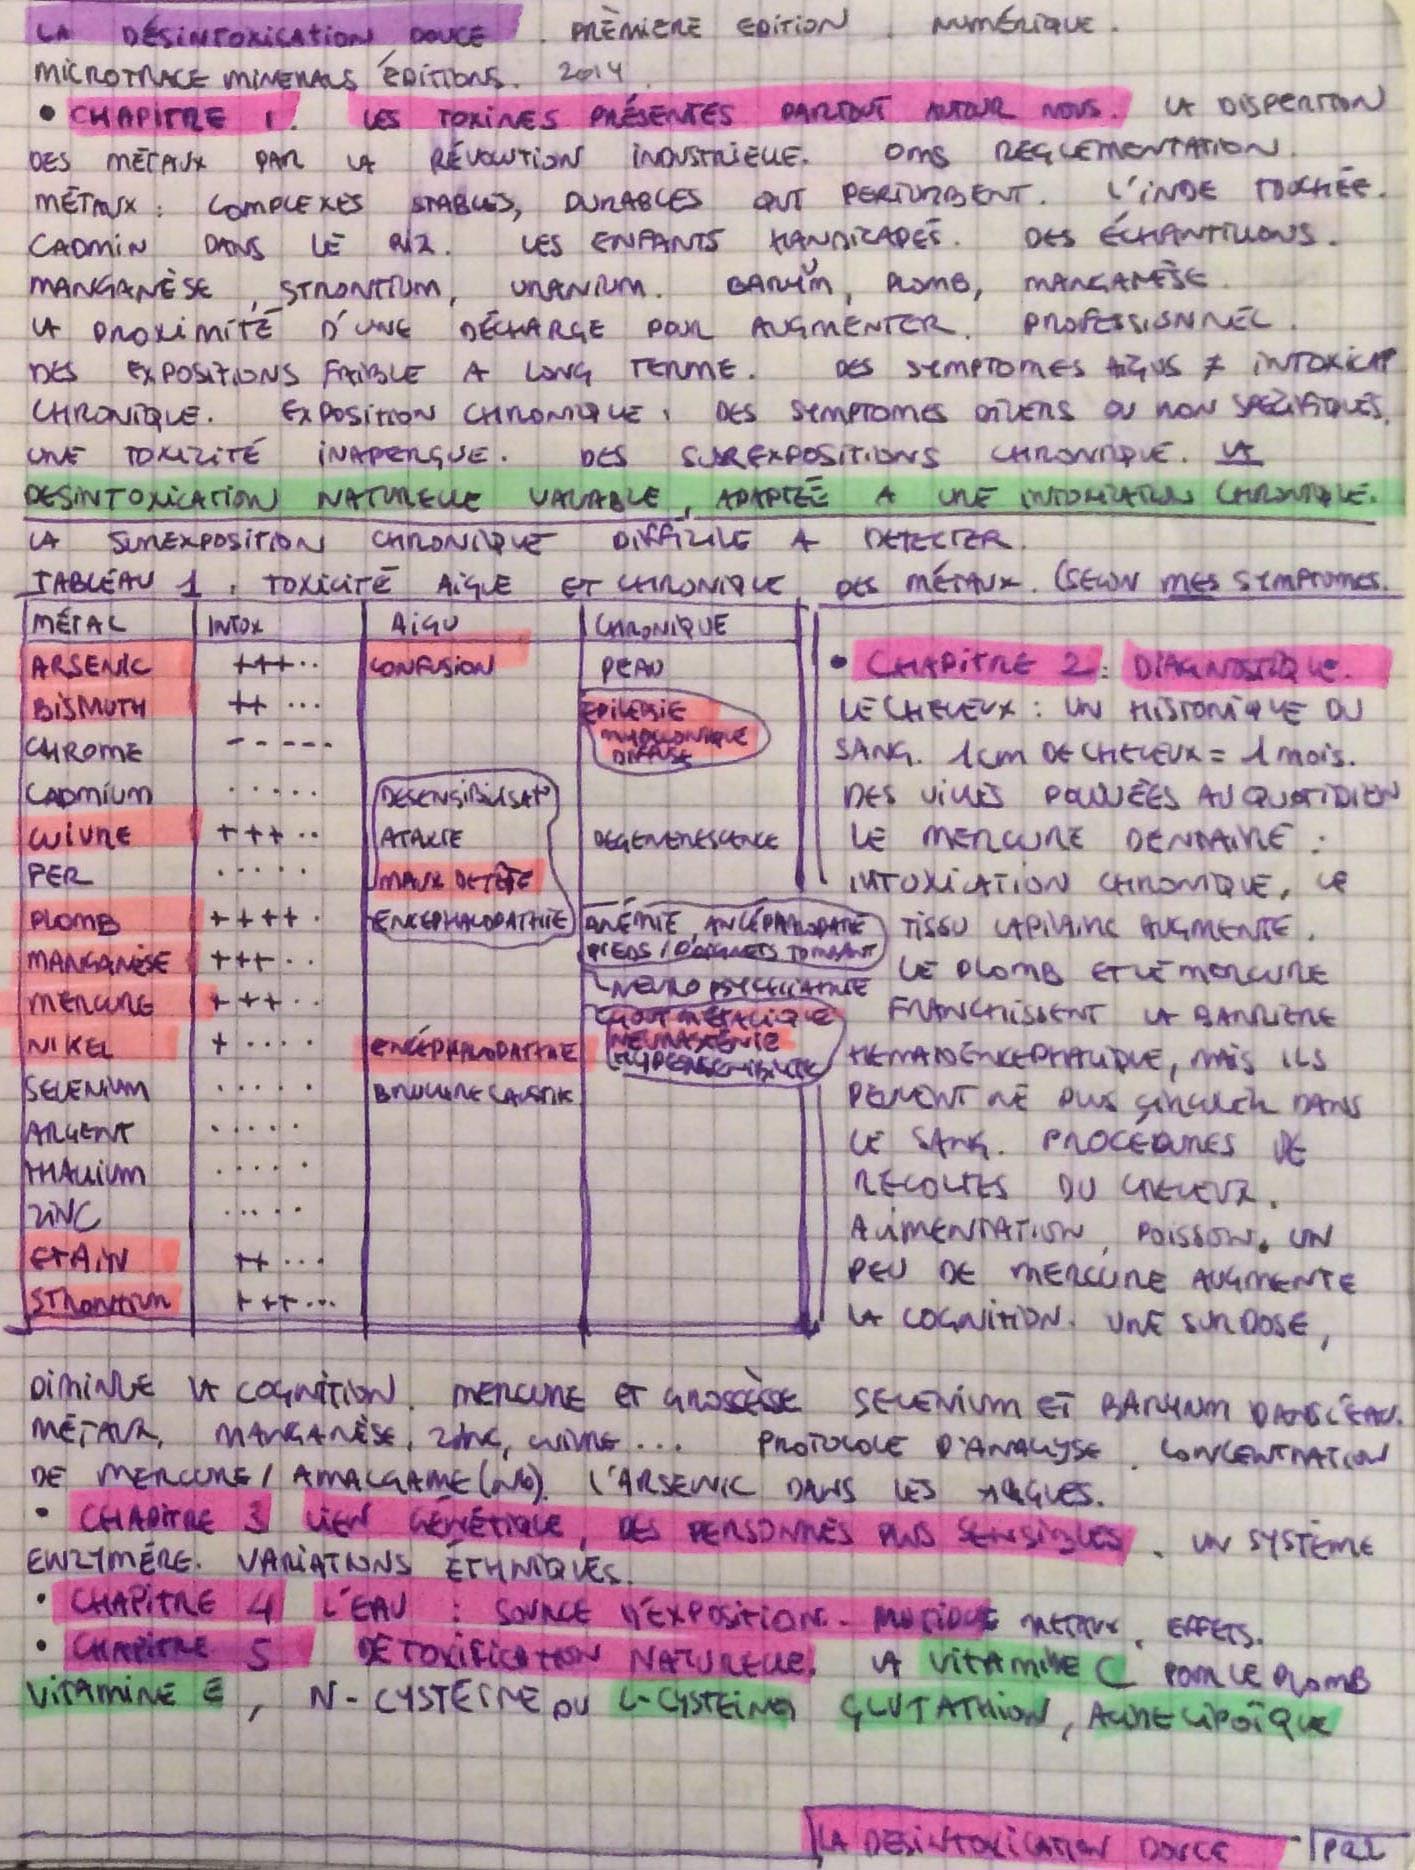 LA DÉSINTOXICATION DOUCE. PRÈMIERE EDITION. NUMÉRIQUE.
MICROTRACE MINERALS ÉDITIONS. 2014.
• CHAPITRE 1. LES TOXINES PRÉSENTES PARTOUT AUTOUR NOUS. LA DISPERTION
DES MÉTAUX PAR LA RÉVOLUTION INDUSTRIELLE. OMS REGLEMENTATION.
MÉTAUX: COMPLEXES STABLES, DURABLES QUI PERTURBENT. L'INDE TOUCHÉE.
CADMIN DANS LE RIZ. LES ENFANTS HANDICAPÉS. DES ÉCHANTILLONS.
MANGANÈSE, STRONTIUM, URANIUM. BARYUM, PLOMB, MANGANÈSE.
LA PROXIMITÉ D'UNE DÉCHARGE POUR AUGMENTER. PROFESSIONNEL.
DES EXPOSITIONS FAIBLE A LONG TERME. DES SYMPTOMES AIGUS ≠ INTOXICAT°
CHRONIQUE. EXPOSITION CHRONIQUE: DES SYMPTOMES DIVERS OU NON SPÉCIFIQUES.
UNE TOXICITÉ INAPERÇUE. DES SUREXPOSITIONS CHRONIQUE. LA
DESINTOXICATION NATURELLE VALABLE, ADAPTÉE A UNE INTOXICATION CHRONIQUE.
LA SUREXPOSITION CHRONIQUE DIFFICILE A DETECTER.
TABLEAU 1: TOXICITÉ AIGUE ET CHRONIQUE DES MÉTAUX. (SELON MES SYMPTOMES.
MÉTAL INTOX AIGU CHRONIQUE
ARSENIC +++·· CONFUSION PEAU
BISMUTH ++··· EPILEPSIE MYOCLONIQUE DIFFUSE
CHROME -----
CADMIUM ····· DESENSIBILISAT°
CUIVRE +++·· ATAXIE DEGENERESCENCE
FER ····· MAUX DE TÊTE
PLOMB ++++· ENCEPHALOPATHIE ANÉMIE, ANCÉPHALOPATIE
PIEDS / POIGNETS TOMBANT
MANGANÈSE +++·· NEUROPSYCHIATRIE
MERCURE +++·· GOUT MÉTALLIQUE
NIKEL +···· ENCÉPHALOPATHIE NEURASTÉNIE HYPERSENSIBILITÉ
SELENIUM ·····
ARGENT ·····
THALLIUM ·····
ZINC ·····
ETAIN ++···
STRONTIUM +++···
• CHAPITRE 2: DIAGNOSTIQUE.
LE CHEVEUX: UN HISTORIQUE DU
SANG. 1CM DE CHEVEUX = 1 MOIS.
DES VILLES POLLUÉES AU QUOTIDIEN
LE MERCURE DENTAIRE:
INTOXICATION CHRONIQUE, LE
TISSU CAPILLAIRE AUGMENTE.
LE PLOMB ET LE MERCURE
FRANCHISSENT LA BARRIÈRE
HEMATOENCEPHALIQUE, MAIS ILS
PEUVENT NE PLUS CIRCULER DANS
LE SANG. PROCÉDURES DE
RÉCOLTES DU CHEVEUX.
ALIMENTATION, POISSON. UN
PEU DE MERCURE AUGMENTE
LA COGNITION. UNE SURDOSE,
DIMINUE LA COGNITION. MERCURE ET GROSSÈSSE SELENIUM ET BARYUM DANS L'EAU.
MÉTAUX, MANGANÈSE, ZINC, CUIVRE... PROTOCOLE D'ANALYSE. CONCENTRATION
DE MERCURE / AMALGAME (NB). L'ARSENIC DANS LES ALGUES.
• CHAPITRE 3 LIEN GÉNÉTIQUE, DES PERSONNES PLUS SENSIBLES. UN SYSTÈME
ENZYMÉRE. VARIATIONS ÉTHNIQUES.
• CHAPITRE 4 L'EAU: SOURCE D'EXPOSITION. METAUX, EFFETS.
• CHAPITRE 5 DETOXIFICATION NATURELLE. LA VITAMINE C POUR LE PLOMB
VITAMINE E, N-CYSTEINE OU L-CYSTEINE, GLUTATHION, ACIDE LIPOÏQUE
LA DESINTOXICATION DOUCE